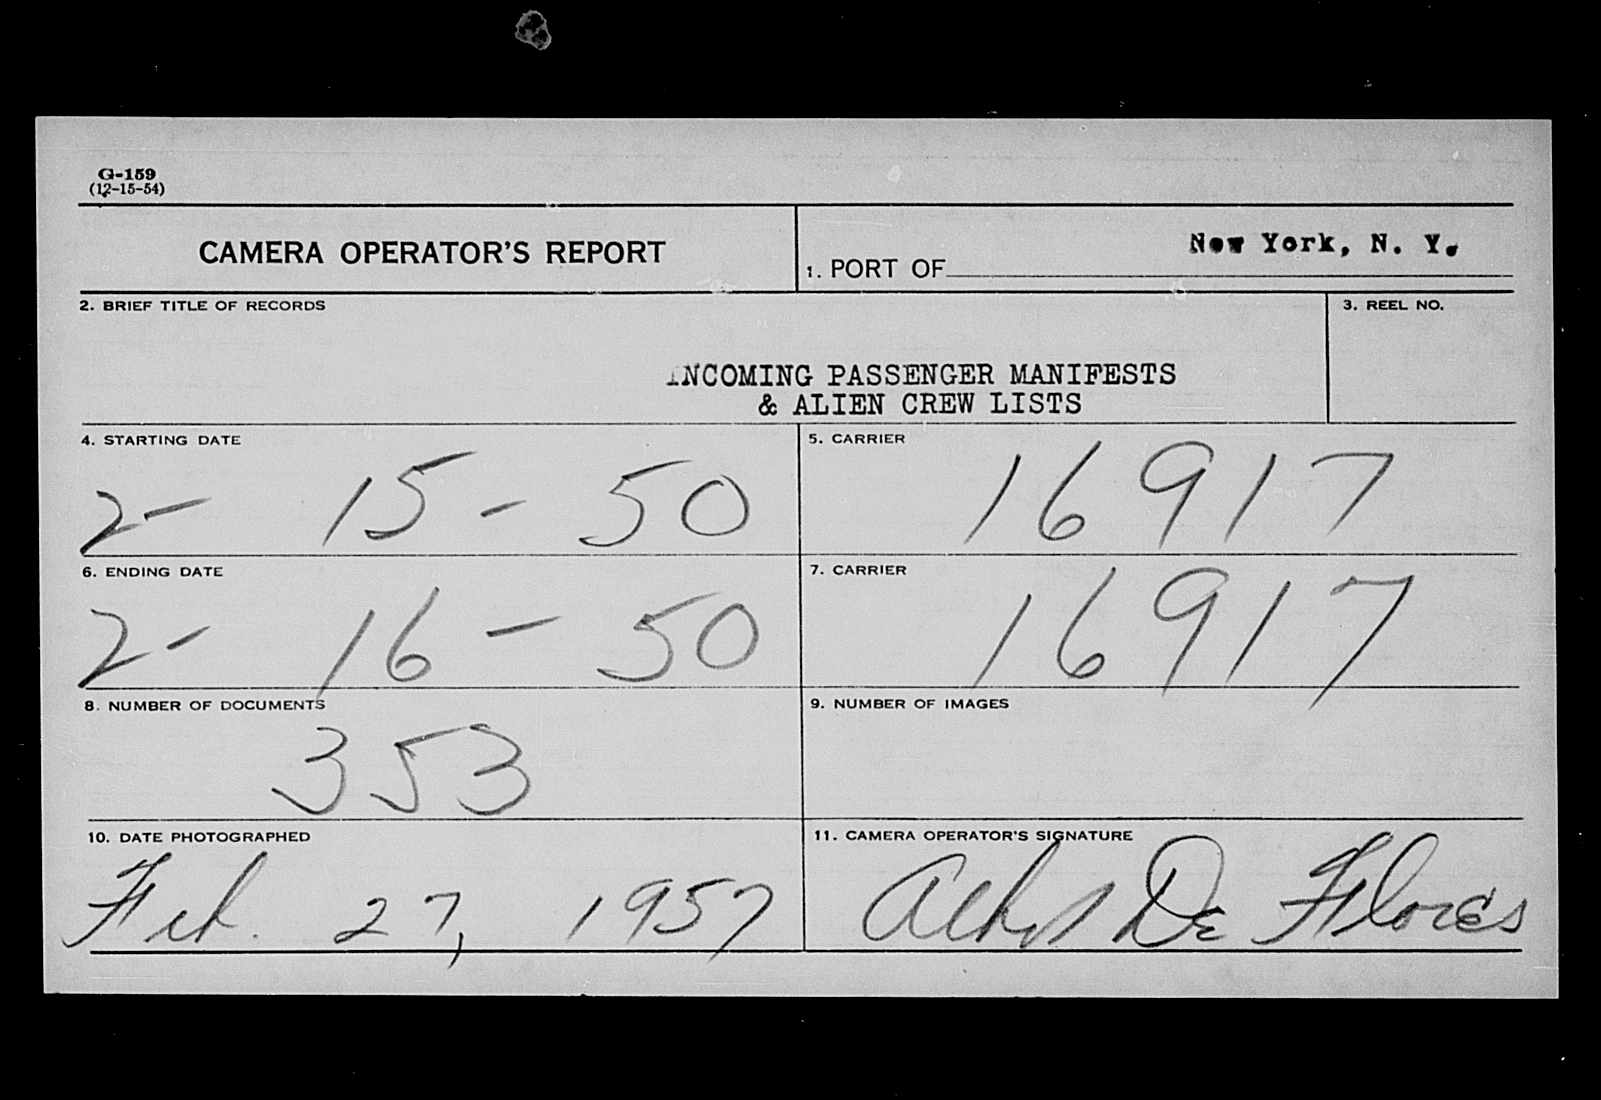 G-159
(12-15-54)
CAMERA OPERATOR'S REPORT
1. PORT OF New York, N. Y.
2. BRIEF TITLE OF RECORDS
3. REEL NO.
INCOMING PASSENGER MANIFESTS
& ALIEN CREW LISTS
4. STARTING DATE
5. CARRIER
2- 15-50
16917
6. ENDING DATE
7. CARRIER
2- 16-50
16917
8. NUMBER OF DOCUMENTS
9. NUMBER OF IMAGES
353
10. DATE PHOTOGRAPHED
11. CAMERA OPERATOR'S SIGNATURE
Feb. 27, 1957
De Flores